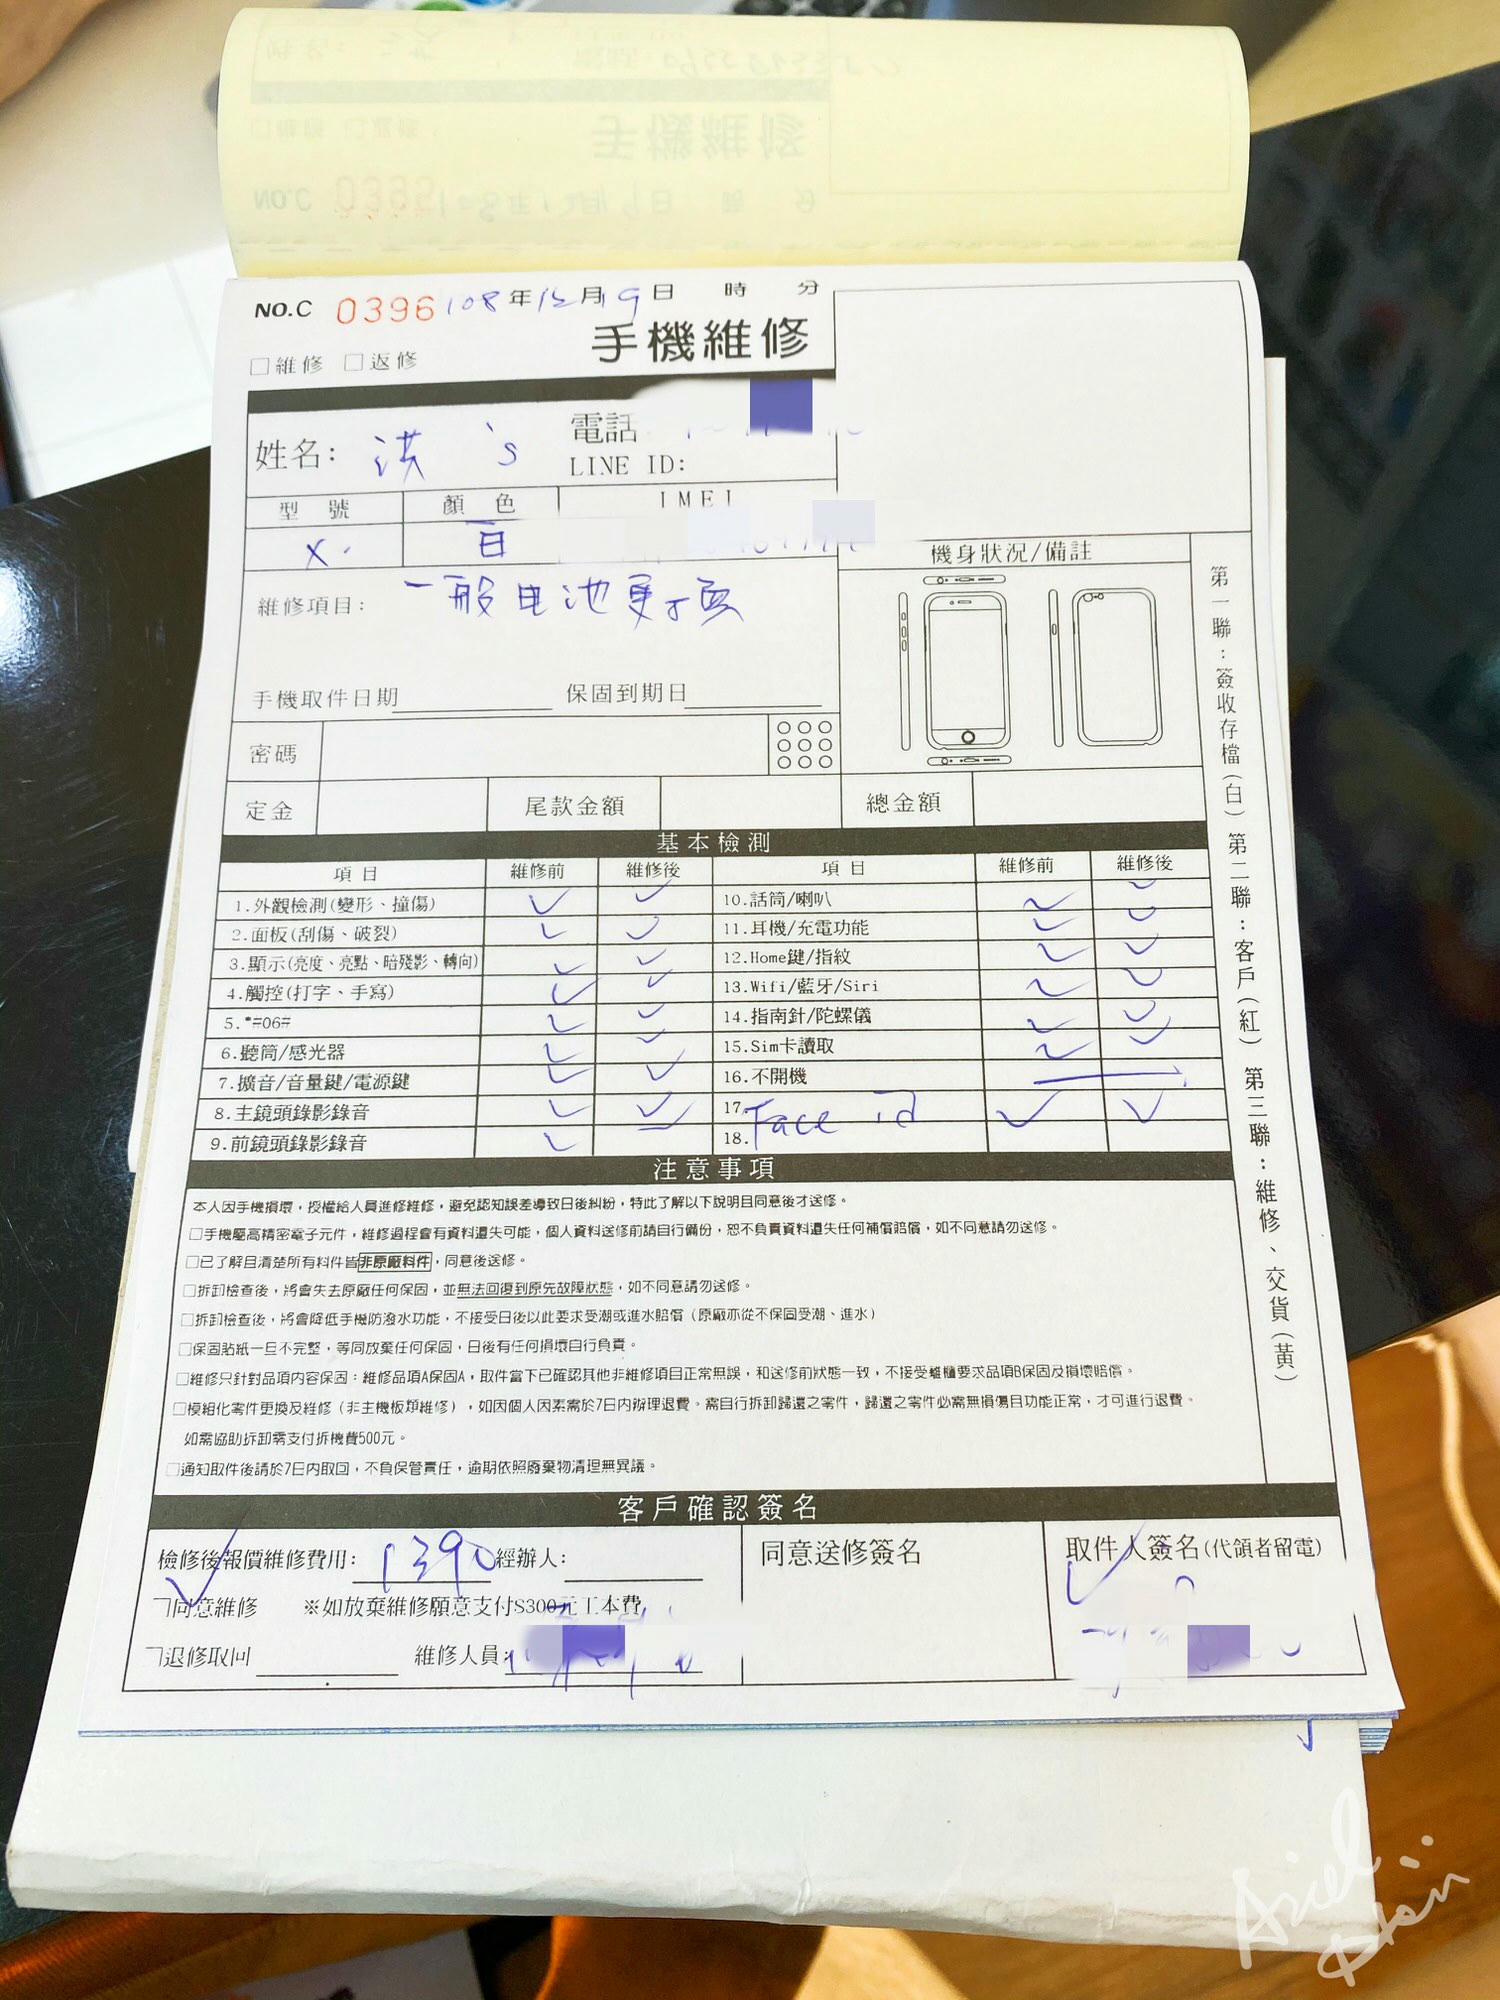 NO.C 0396 108年12月19日 時 分
手機維修
□維修 □返修
姓名: 洪 電話
LINE ID:
型 號 顏 色 IMEI
X 白
機身狀況/備註
維修項目: 一般电池更换
手機取件日期 保固到期日
密碼
定金 尾款金額 總金額
基本檢測
項目 維修前 維修後 項目 維修前 維修後
1.外觀檢測(變形、撞傷) 10.話筒/喇叭
2.面板(刮傷、破裂) 11.耳機/充電功能
3.顯示(亮度、亮點、暗殘影、轉向) 12.Home鍵/指紋
4.觸控(打字、手寫) 13.Wifi/藍牙/Siri
5.*#06# 14.指南針/陀螺儀
6.聽筒/感光器 15.Sim卡讀取
7.擴音/音量鍵/電源鍵 16.不開機
8.主鏡頭錄影錄音 17.Face id
9.前鏡頭錄影錄音 18.
注意事項
本人因手機損壞，授權給人員進修維修，避免認知誤差導致日後糾紛，特此了解以下說明且同意後才送修。
□手機屬高精密電子元件，維修過程會有資料遺失可能，個人資料送修前請自行備份，恕不負責資料遺失任何補償賠償，如不同意請勿送修。
□已了解且清楚所有料件皆非原廠料件，同意後送修。
□拆卸檢查後，將會失去原廠任何保固，並無法回復到原先故障狀態，如不同意請勿送修。
□拆卸檢查後，將會降低手機防潑水功能，不接受日後以此要求受潮或進水賠償（原廠亦從不保固受潮、進水）
□保固貼紙一旦不完整，等同放棄任何保固，日後有任何損壞自行負責。
□維修只針對品項內容保固：維修品項A保固A，取件當下已確認其他非維修項目正常無誤，和送修前狀態一致，不接受離櫃要求品項B保固及損壞賠償。
□模組化零件更換及維修（非主機板類維修），如因個人因素需於7日內辦理退費。需自行拆卸歸還之零件，歸還之零件必需無損傷且功能正常，才可進行退費。
如需協助拆卸需支付拆機費500元。
□通知取件後請於7日內取回，不負保管責任，逾期依照廢棄物清理無異議。
客戶確認簽名
檢修後報價維修費用: 1390 經辦人: 同意送修簽名 取件人簽名(代領者留電)
□同意維修 ※如放棄維修願意支付$300元工本費
□退修取回 維修人員:
第一聯：簽收存檔(白) 第二聯：客戶(紅) 第三聯：維修、交貨(黃)